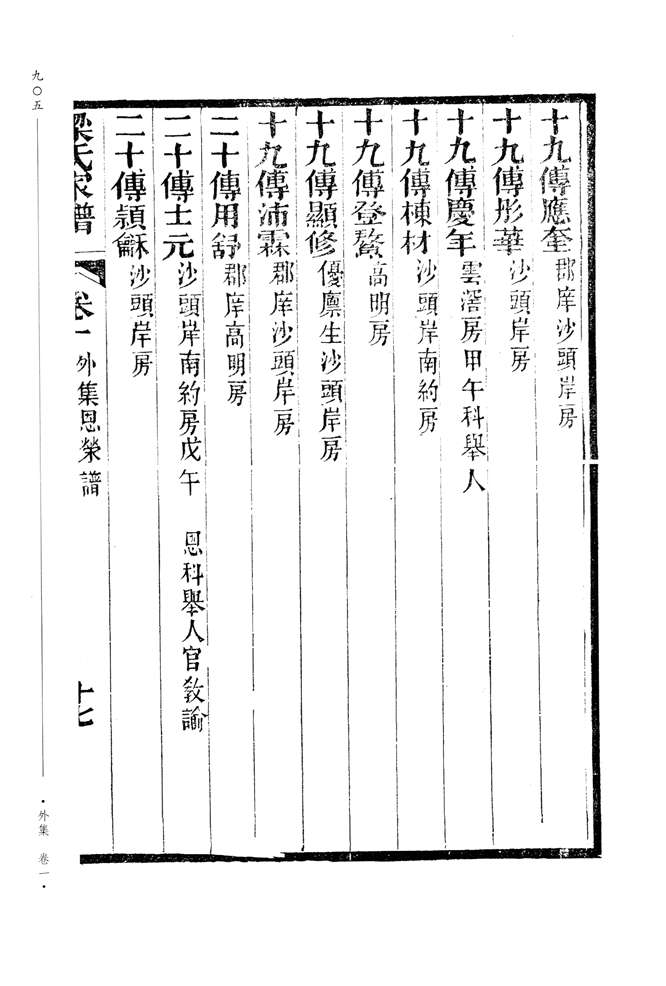 十九傳應奎郡庠沙頭岸房
十九傳彤華沙頭岸房
十九傳慶年雲滘房甲午科舉人
十九傳棟材沙頭岸南約房
十九傳登鰲高明房
十九傳顯修優廪生沙頭岸房
十九傳沛霖郡庠沙頭岸房
二十傳用舒郡庠高明房
二十傳士元沙頭岸南約房戊午　恩科舉人官敎諭
二十傳頴龢沙頭岸房
梁氏家譜　卷一　外集恩榮譜　十七
九〇五
·外集　卷一·